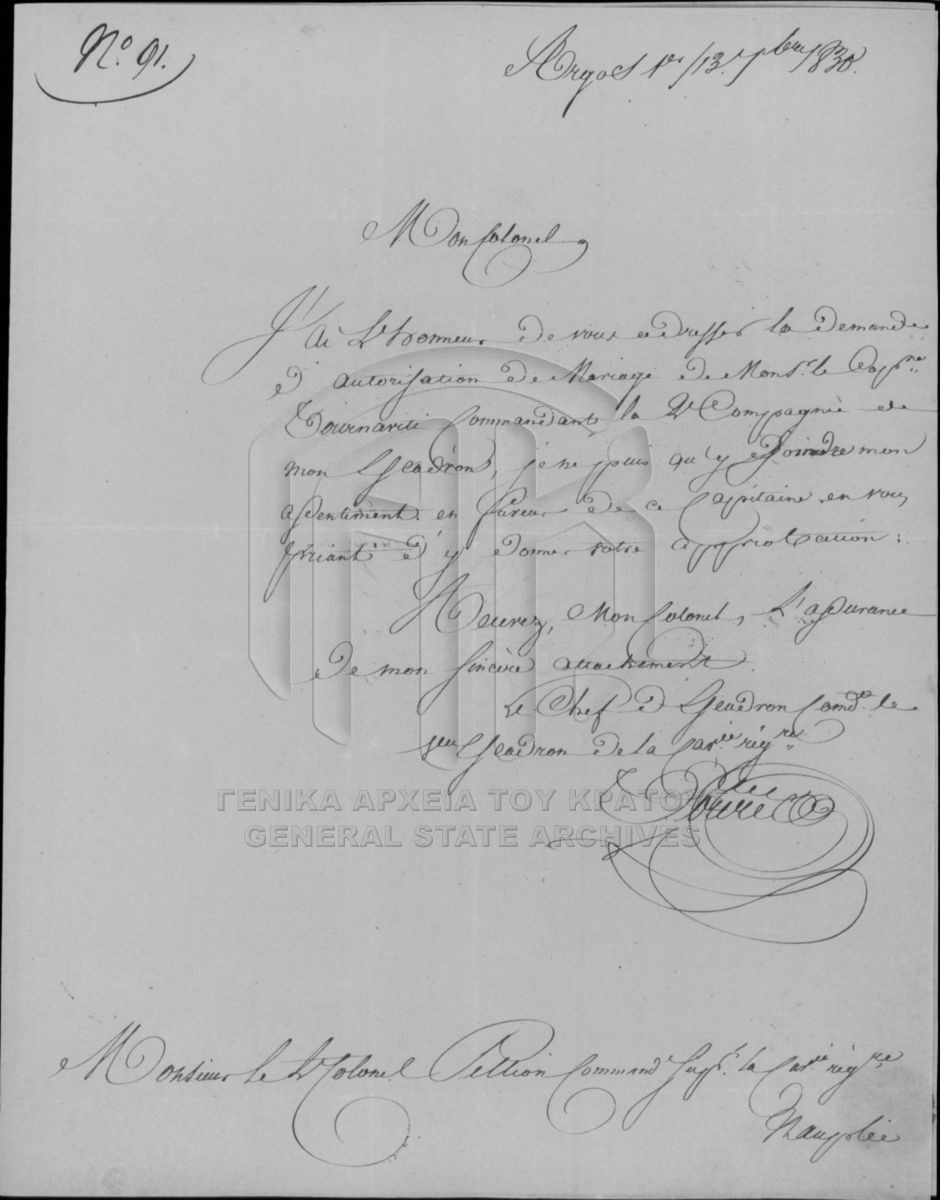 No. 91.
Argos 1er/13 7bre 1830.
Mon Colonel,
J'ai L'honneur de vous adresser la demande
d'autorisation de Mariage de Monsr. le Capne.
commandant la 2e Compagnie de
mon Escadron, je ne puis qu'y Joindre mon
assentiment en faveur de ce Capitaine en vous
priant d'y donner votre approbation.
Recevez, Mon Colonel, L'assurance
de mon sincère attachement
Le Chef d'Escadron Comdt. le
1er Escadron de la Cavrie régre.
ΓΕΝΙΚΑ ΑΡΧΕΙΑ ΤΟΥ ΚΡΑΤΟΥΣ
GENERAL STATE ARCHIVES
Monsieur le Lt Colonel Pellion Commandt Supr. la Cavrie régre.
Nauplie